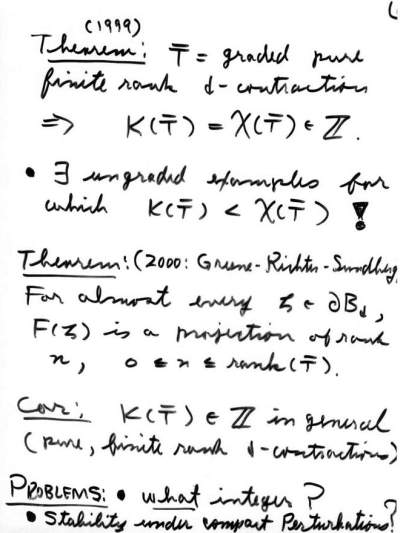 (1999)
Theorem: T̄ = graded pure
finite rank d-contractions
⇒ K(T̄) = χ(T̄) ∈ ℤ.
• ∃ ungraded examples for
which K(T̄) < χ(T̄) !
Theorem: (2000: Greene-Richter-Sundberg)
For almost every ζ ∈ ∂B_d,
F(ζ) is a projection of rank
n, 0 ≤ n ≤ rank(T̄).
Cor: K(T̄) ∈ ℤ in general
(pure, finite rank d-contractions)
PROBLEMS: • what integer?
• Stability under compact Perturbations?